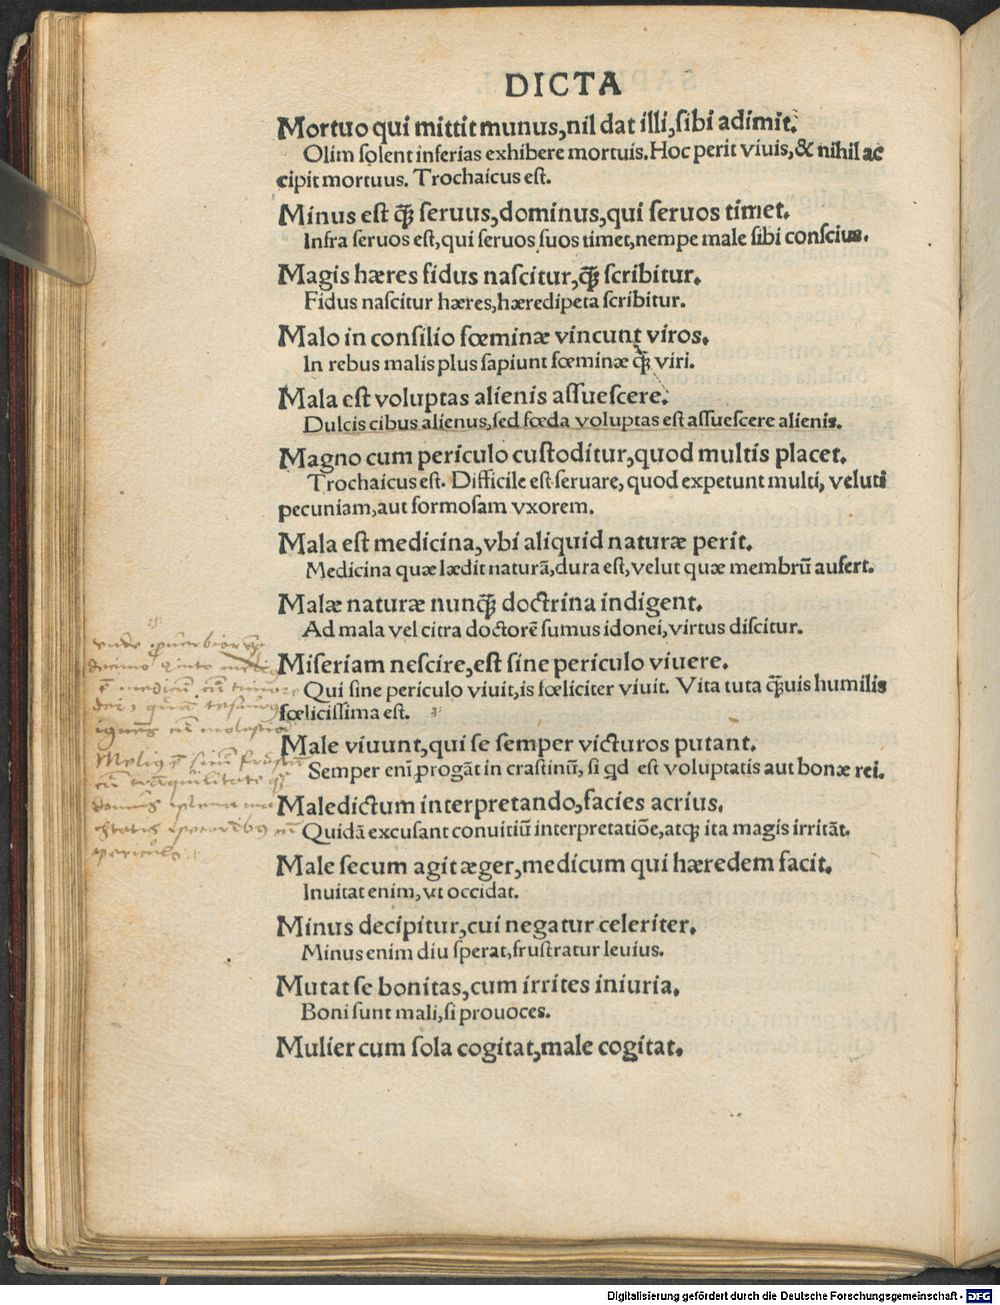 DICTA
Mortuo qui mittit munus,nil dat illi,ſibi adimit.
Olim ſolent inferias exhibere mortuis.Hoc perit viuis,& nihil ac
cipit mortuus. Trochaicus eſt.
Minus eſt q̃ꝫ ſeruus,dominus,qui ſeruos timet.
Infra ſeruos eſt,qui ſeruos ſuos timet,nempe male ſibi conſcius.
Magis hæres fidus naſcitur,q̃ꝫ ſcribitur.
Fidus naſcitur hæres,hæredipeta ſcribitur.
Malo in conſilio fœminæ vincunt viros.
In rebus malis plus ſapiunt fœminæ q̃ꝫ viri.
Mala eſt voluptas alienis aſſueſcere.
Dulcis cibus alienus,ſed fœda voluptas eſt aſſueſcere alienis.
Magno cum periculo cuſtoditur,quod multis placet.
Trochaicus eſt. Difficile eſt ſeruare, quod expetunt multi, veluti
pecuniam,aut formoſam vxorem.
Mala eſt medicina,vbi aliquid naturæ perit.
Medicina quæ lædit naturã,dura eſt,velut quæ membrũ aufert.
Malæ naturæ nunq̃ꝫ doctrina indigent.
Ad mala vel citra doctorẽ ſumus idonei,virtus diſcitur.
Miſeriam neſcire,eſt ſine periculo viuere.
Qui ſine periculo viuit,is fœliciter viuit. Vita tuta q̃ꝫuis humilis
fœliciſſima eſt.
Male viuunt,qui ſe ſemper victuros putant.
Semper enĩ progãt in craſtinũ, ſi qd eſt voluptatis aut bonæ rei.
Maledictum interpretando,facies acrius.
Quidã excuſant conuitiũ interpretatiõe,atqꝫ ita magis irritãt.
Male ſecum agit æger,medicum qui hæredem facit.
Inuitat enim,vt occidat.
Minus decipitur,cui negatur celeriter.
Minus enim diu ſperat,fruſtratur leuius.
Mutat ſe bonitas,cum irrites iniuria.
Boni ſunt mali,ſi prouoces.
Mulier cum ſola cogitat,male cogitat.
Digitalisierung gefördert durch die Deutsche Forschungsgemeinschaft - DFG